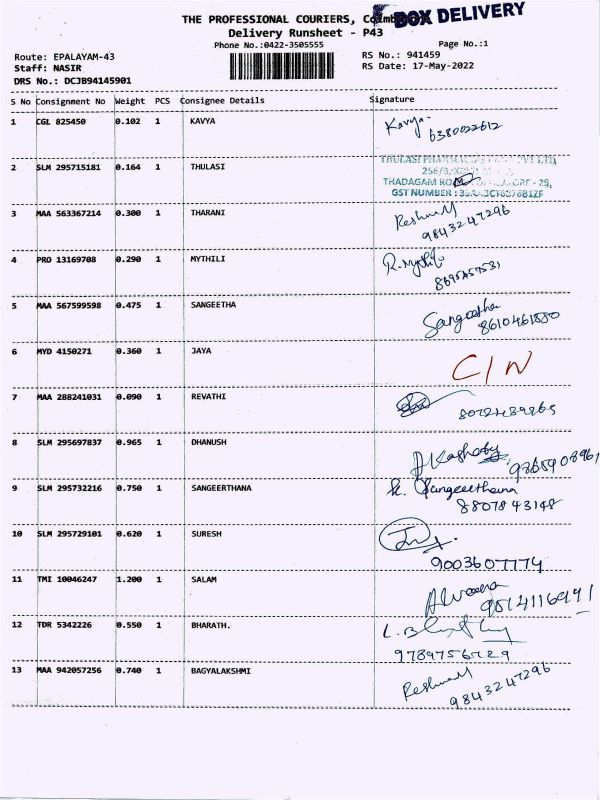 THE PROFESSIONAL COURIERS, BOX DELIVERY
Delivery Runsheet - P43
Phone No.:0422-3505555 Page No.:1
Route: EPALAYAM-43 RS No.: 941459
Staff: NASIR RS Date: 17-May-2022
DRS No.: DCJB94145901
S No Consignment No Weight PCS Consignee Details Signature
1 CGL 825450 0.102 1 KAVYA Kavya.
6380022612
2 SLM 295715181 0.164 1 THULASI
THADAGAM
GST NUMBER :
3 MAA 563367214 0.300 1 THARANI Reshma M
9843247296
4 PRO 13169708 0.290 1 MYTHILI R. Mythili
5 MAA 567599598 0.475 1 SANGEETHA Sangeetha
8610461880
6 MYD 4150271 0.360 1 JAYA C/N
7 MAA 288241031 0.090 1 REVATHI
8 SLM 295697837 0.965 1 DHANUSH
9865908961
9 SLM 295732216 0.750 1 SANGEERTHANA K. Sangeerthana
8807843148
10 SLM 295729101 0.620 1 SURESH
9003607774
11 TMI 10046247 1.200 1 SALAM
12 TDR 5342226 0.550 1 BHARATH.
13 MAA 942057256 0.740 1 BAGYALAKSHMI Reshma M
9843247296